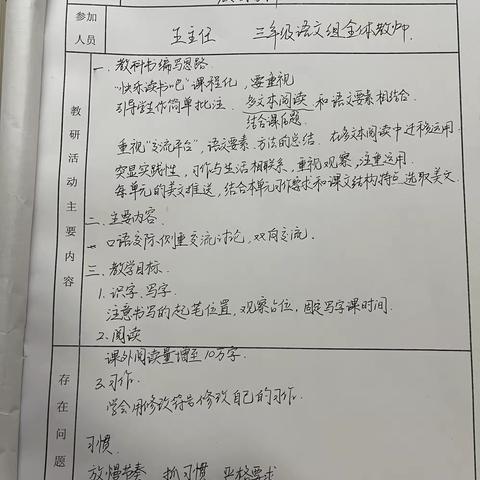 参加人员
王主任 三年级语文组全体教师.
教研活动主要内容
一. 教科书编写思路.
"快乐读书吧"课程化, 要重视
引导学生作简单批注. 多文本阅读 和语文要素相结合.
结合课后题.
重视"交流平台", 语文要素、方法的总结. 在多文本阅读中迁移运用.
突显实践性, 习作与生活相联系, 重视观察, 注重运用.
每单元的美文推送, 结合本单元习作要求和课文结构特点选取美文.
二. 主要内容.
口语交际侧重交流讨论, 双向交流.
三. 教学目标.
1. 识字、写字.
注意书写的起笔位置, 观察占位, 固定写字课时间.
2. 阅读
课外阅读量增至10万字.
存在问题
3. 习作.
学会用修改符号修改自己的习作.
习惯.
放慢节奏 抓习惯 严格要求